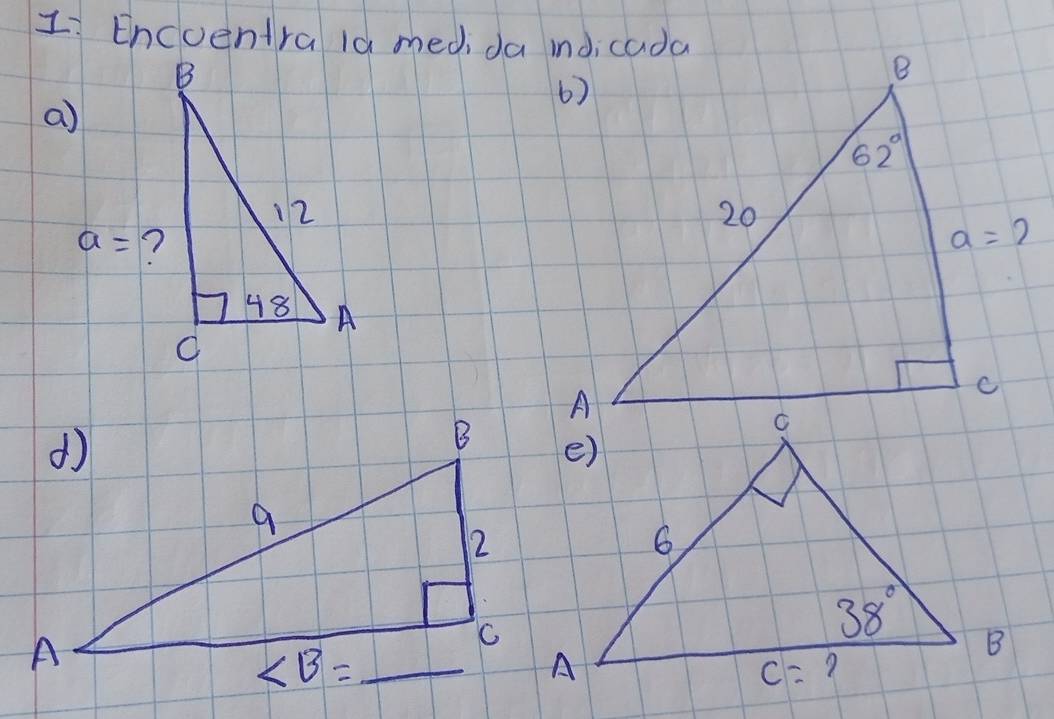 I: Encuentra la medida indicada
a)
B
12
a = ?
48
A
C
b)
B
62°
20
a = ?
A
C
d)
B
9
2
A
C
<B = ____
e)
C
6
38°
A
B
C = ?